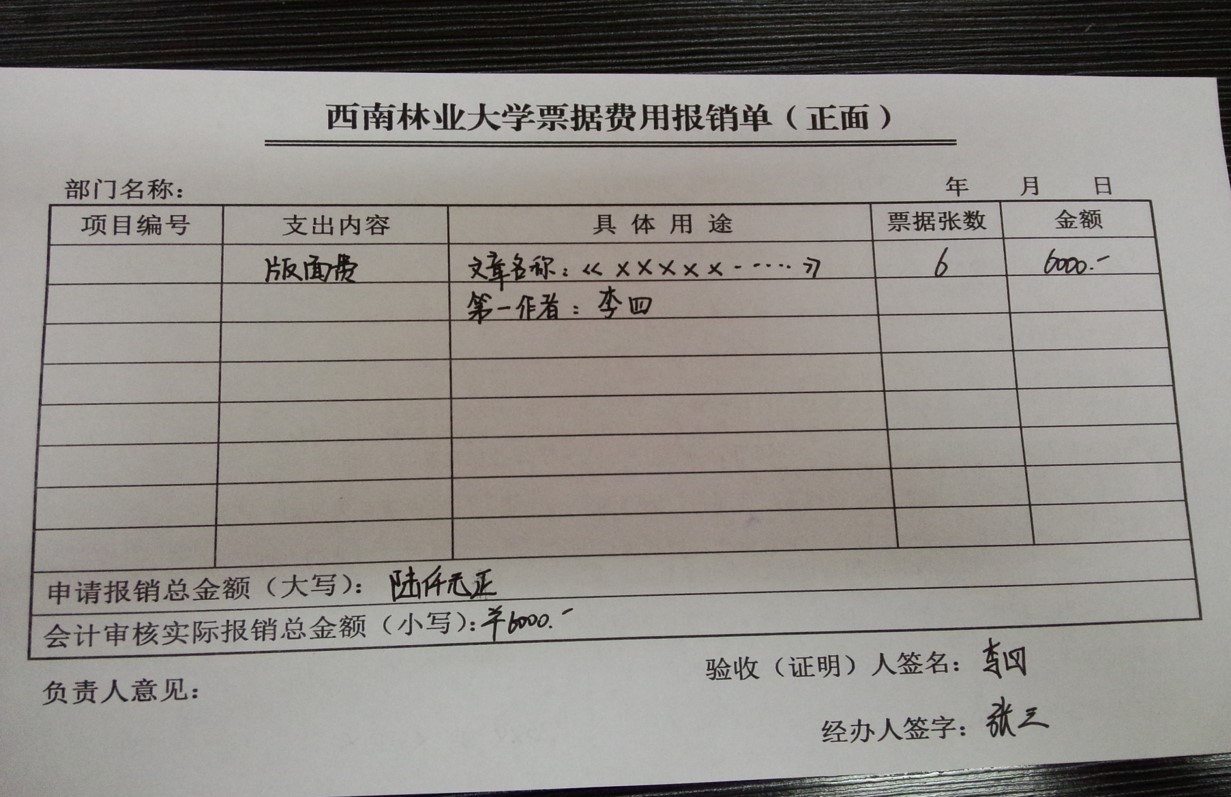 西南林业大学票据费用报销单（正面）
部门名称： 年 月 日
项目编号 支出内容 具体用途 票据张数 金额
版面费 文章名称：《×××××-····》 6 6000.-
第一作者：李四
申请报销总金额（大写）：陆仟元正
会计审核实际报销总金额（小写）：¥6000.-
负责人意见： 验收（证明）人签名：李四
经办人签字：张三